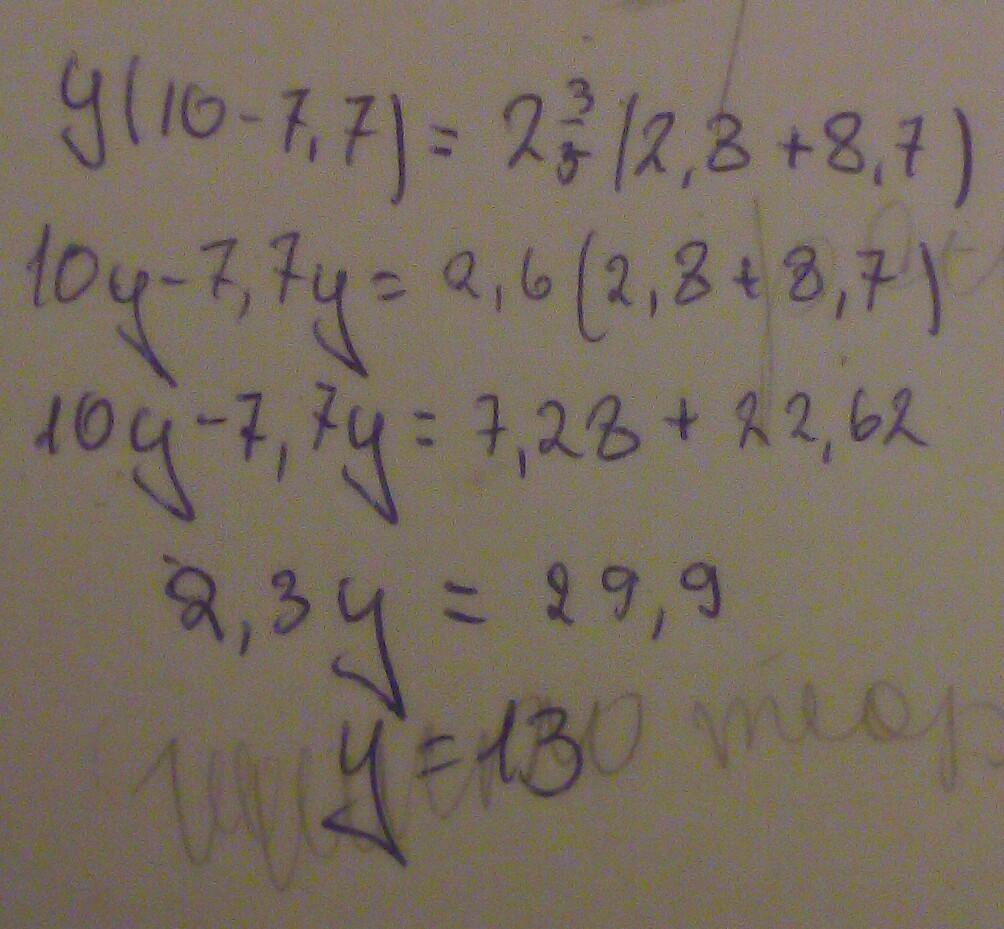 y(10-7,7)=2 3/5 (2,8+8,7)
10y-7,7y=2,6(2,8+8,7)
10y-7,7y=7,28+22,62
2,3y=29,9
y=13